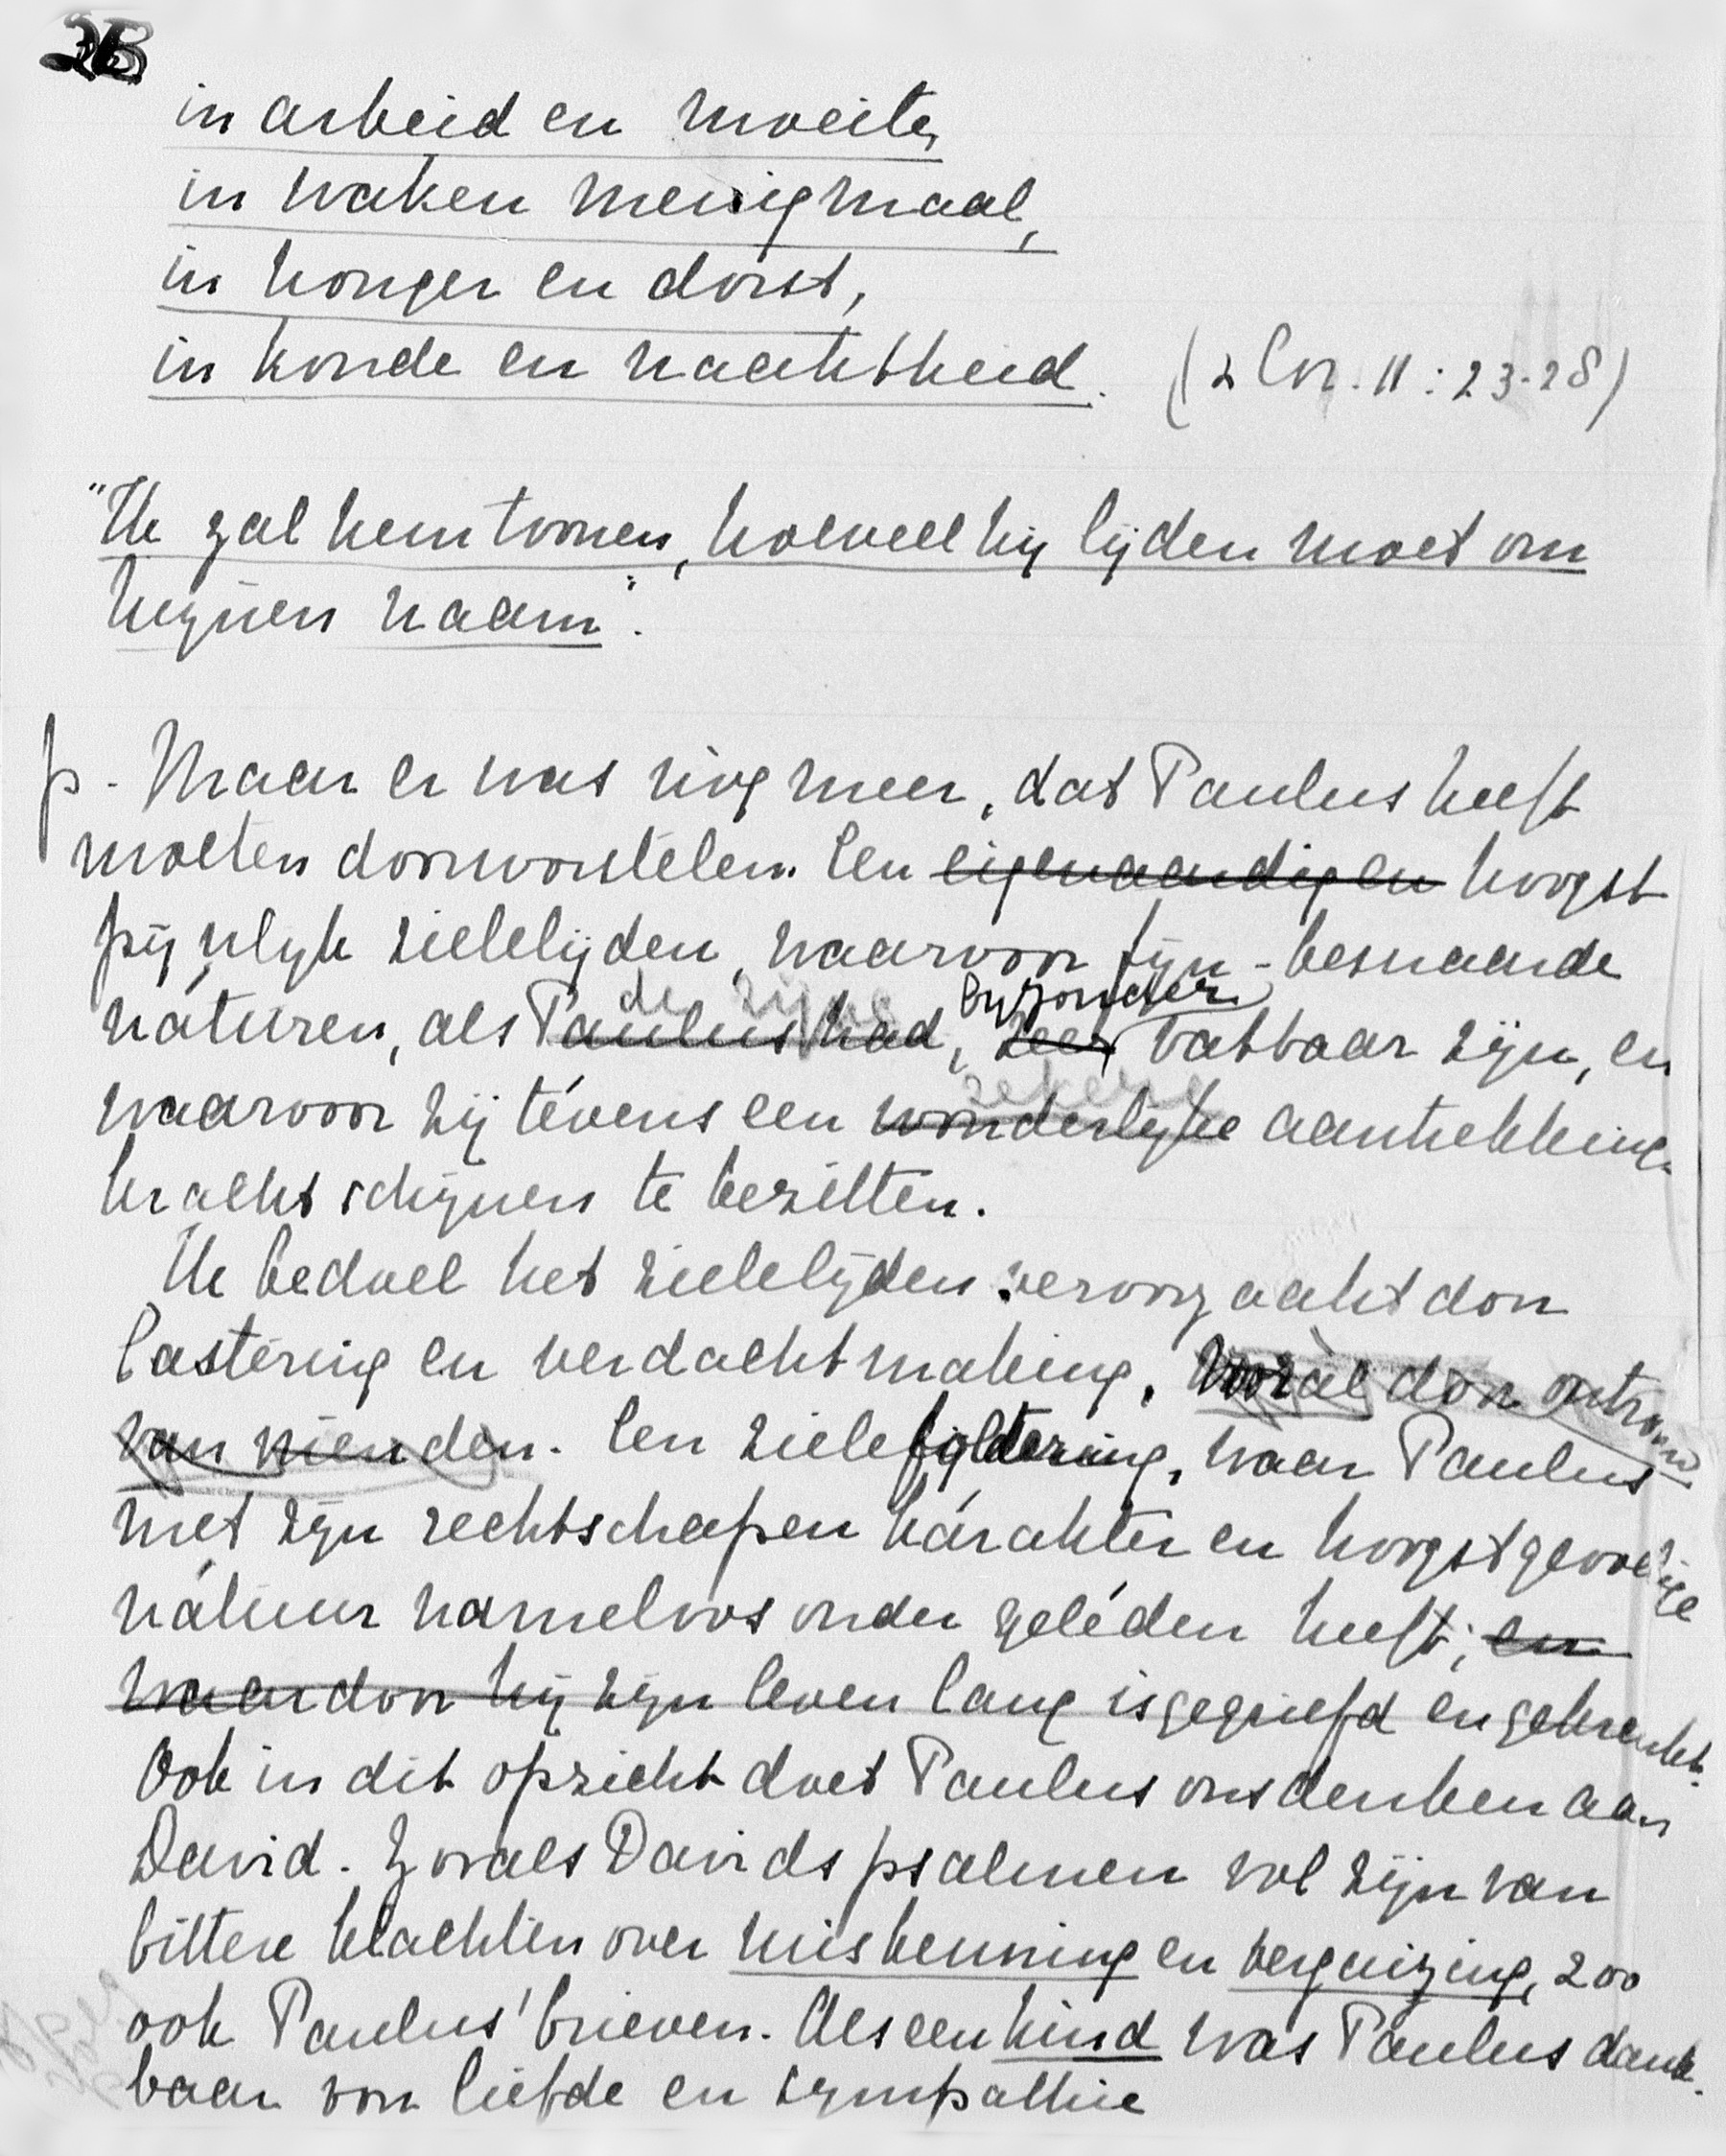 in arbeid en moeite,
in waken menigmaal,
in honger en dorst,
in koude en naaktheid. (2 Cor. 11:23-28)
"Ik zal hem toonen, hoeveel hij lijden moet om
mijnen naam".
p - Maar er was nog meer, dat Paulus heeft
moeten doorworstelen. Een eigenaardig en hoogst
pijnlijk zielelijden, waarvoor fijn-besnaarde
de zijne bijzonder
naturen, als Paulus had, zeer vatbaar zijn, en
zekere
waarvoor zij tévens een wonderlijke aantrekkings-
kracht schijnen te bezitten.
Ik bedoel het zielelijden veroorzaakt door
lastering en verdachtmaking, vooral door ontrouw
van vrienden. Een zielefoltering, waar Paulus
met zijn rechtschapen karakter en hoogstgevoelige
natuur nameloos onder geléden heeft; en
waardoor hij zijn leven lang is gegriefd en gekrenkt.
Ook in dit opzicht doet Paulus ons denken aan
David. Zooals Davids psalmen vol zijn van
bittere klachten over miskenning en verguizing, zoo
ook Paulus' brieven. Als een kind was Paulus dank-
baar voor liefde en sympathie